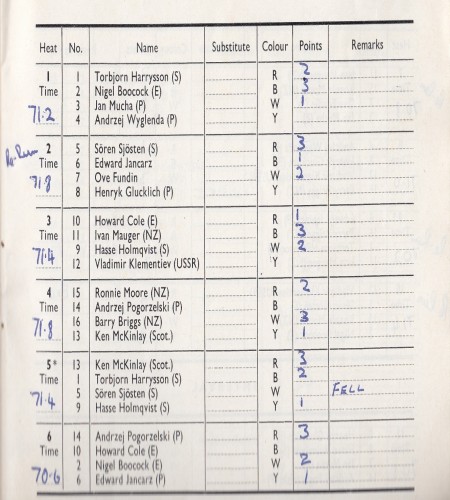 Heat No. Name Substitute Colour Points Remarks
1 1 Torbjorn Harrysson (S) R 2
Time 2 Nigel Boocock (E) B 3
71·2 3 Jan Mucha (P) W 1
4 Andrzej Wyglenda (P) Y
Re-Run 2 5 Sören Sjösten (S) R 3
Time 6 Edward Jancarz B 1
71·8 7 Ove Fundin W 2
8 Henryk Glucklich (P) Y
3 10 Howard Cole (E) R 1
Time 11 Ivan Mauger (NZ) B 3
71·4 9 Hasse Holmqvist (S) W 2
12 Vladimir Klementiev (USSR) Y
4 15 Ronnie Moore (NZ) R 2
Time 14 Andrzej Pogorzelski (P) B
71·8 16 Barry Briggs (NZ) W 3
13 Ken McKinlay (Scot.) Y 1
5* 13 Ken McKinlay (Scot.) R 3
Time 1 Torbjorn Harrysson (S) B 2
71·4 5 Sören Sjösten (S) W FELL
9 Hasse Holmqvist (S) Y 1
6 14 Andrzej Pogorzelski (P) R 3
Time 10 Howard Cole (E) B
70·6 2 Nigel Boocock (E) W 2
6 Edward Jancarz (P) Y 1